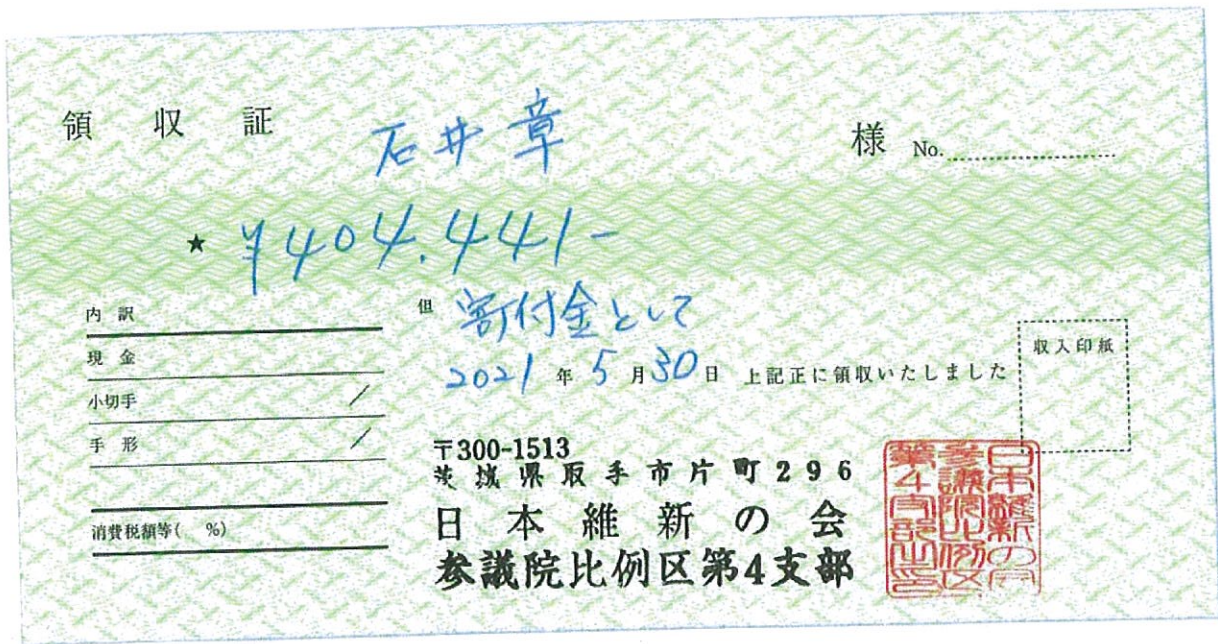 領 収 証 石井 章 様 No.
★ ¥404.441-
内 訳
現 金
小切手 /
手 形 /
消費税額等( %)
但 寄付金として
2021 年 5 月 30 日 上記正に領収いたしました
収入印紙
〒300-1513
茨城県取手市片町296
日本維新の会
参議院比例区第4支部
日本維新の会
参議院比例区
第4支部之印